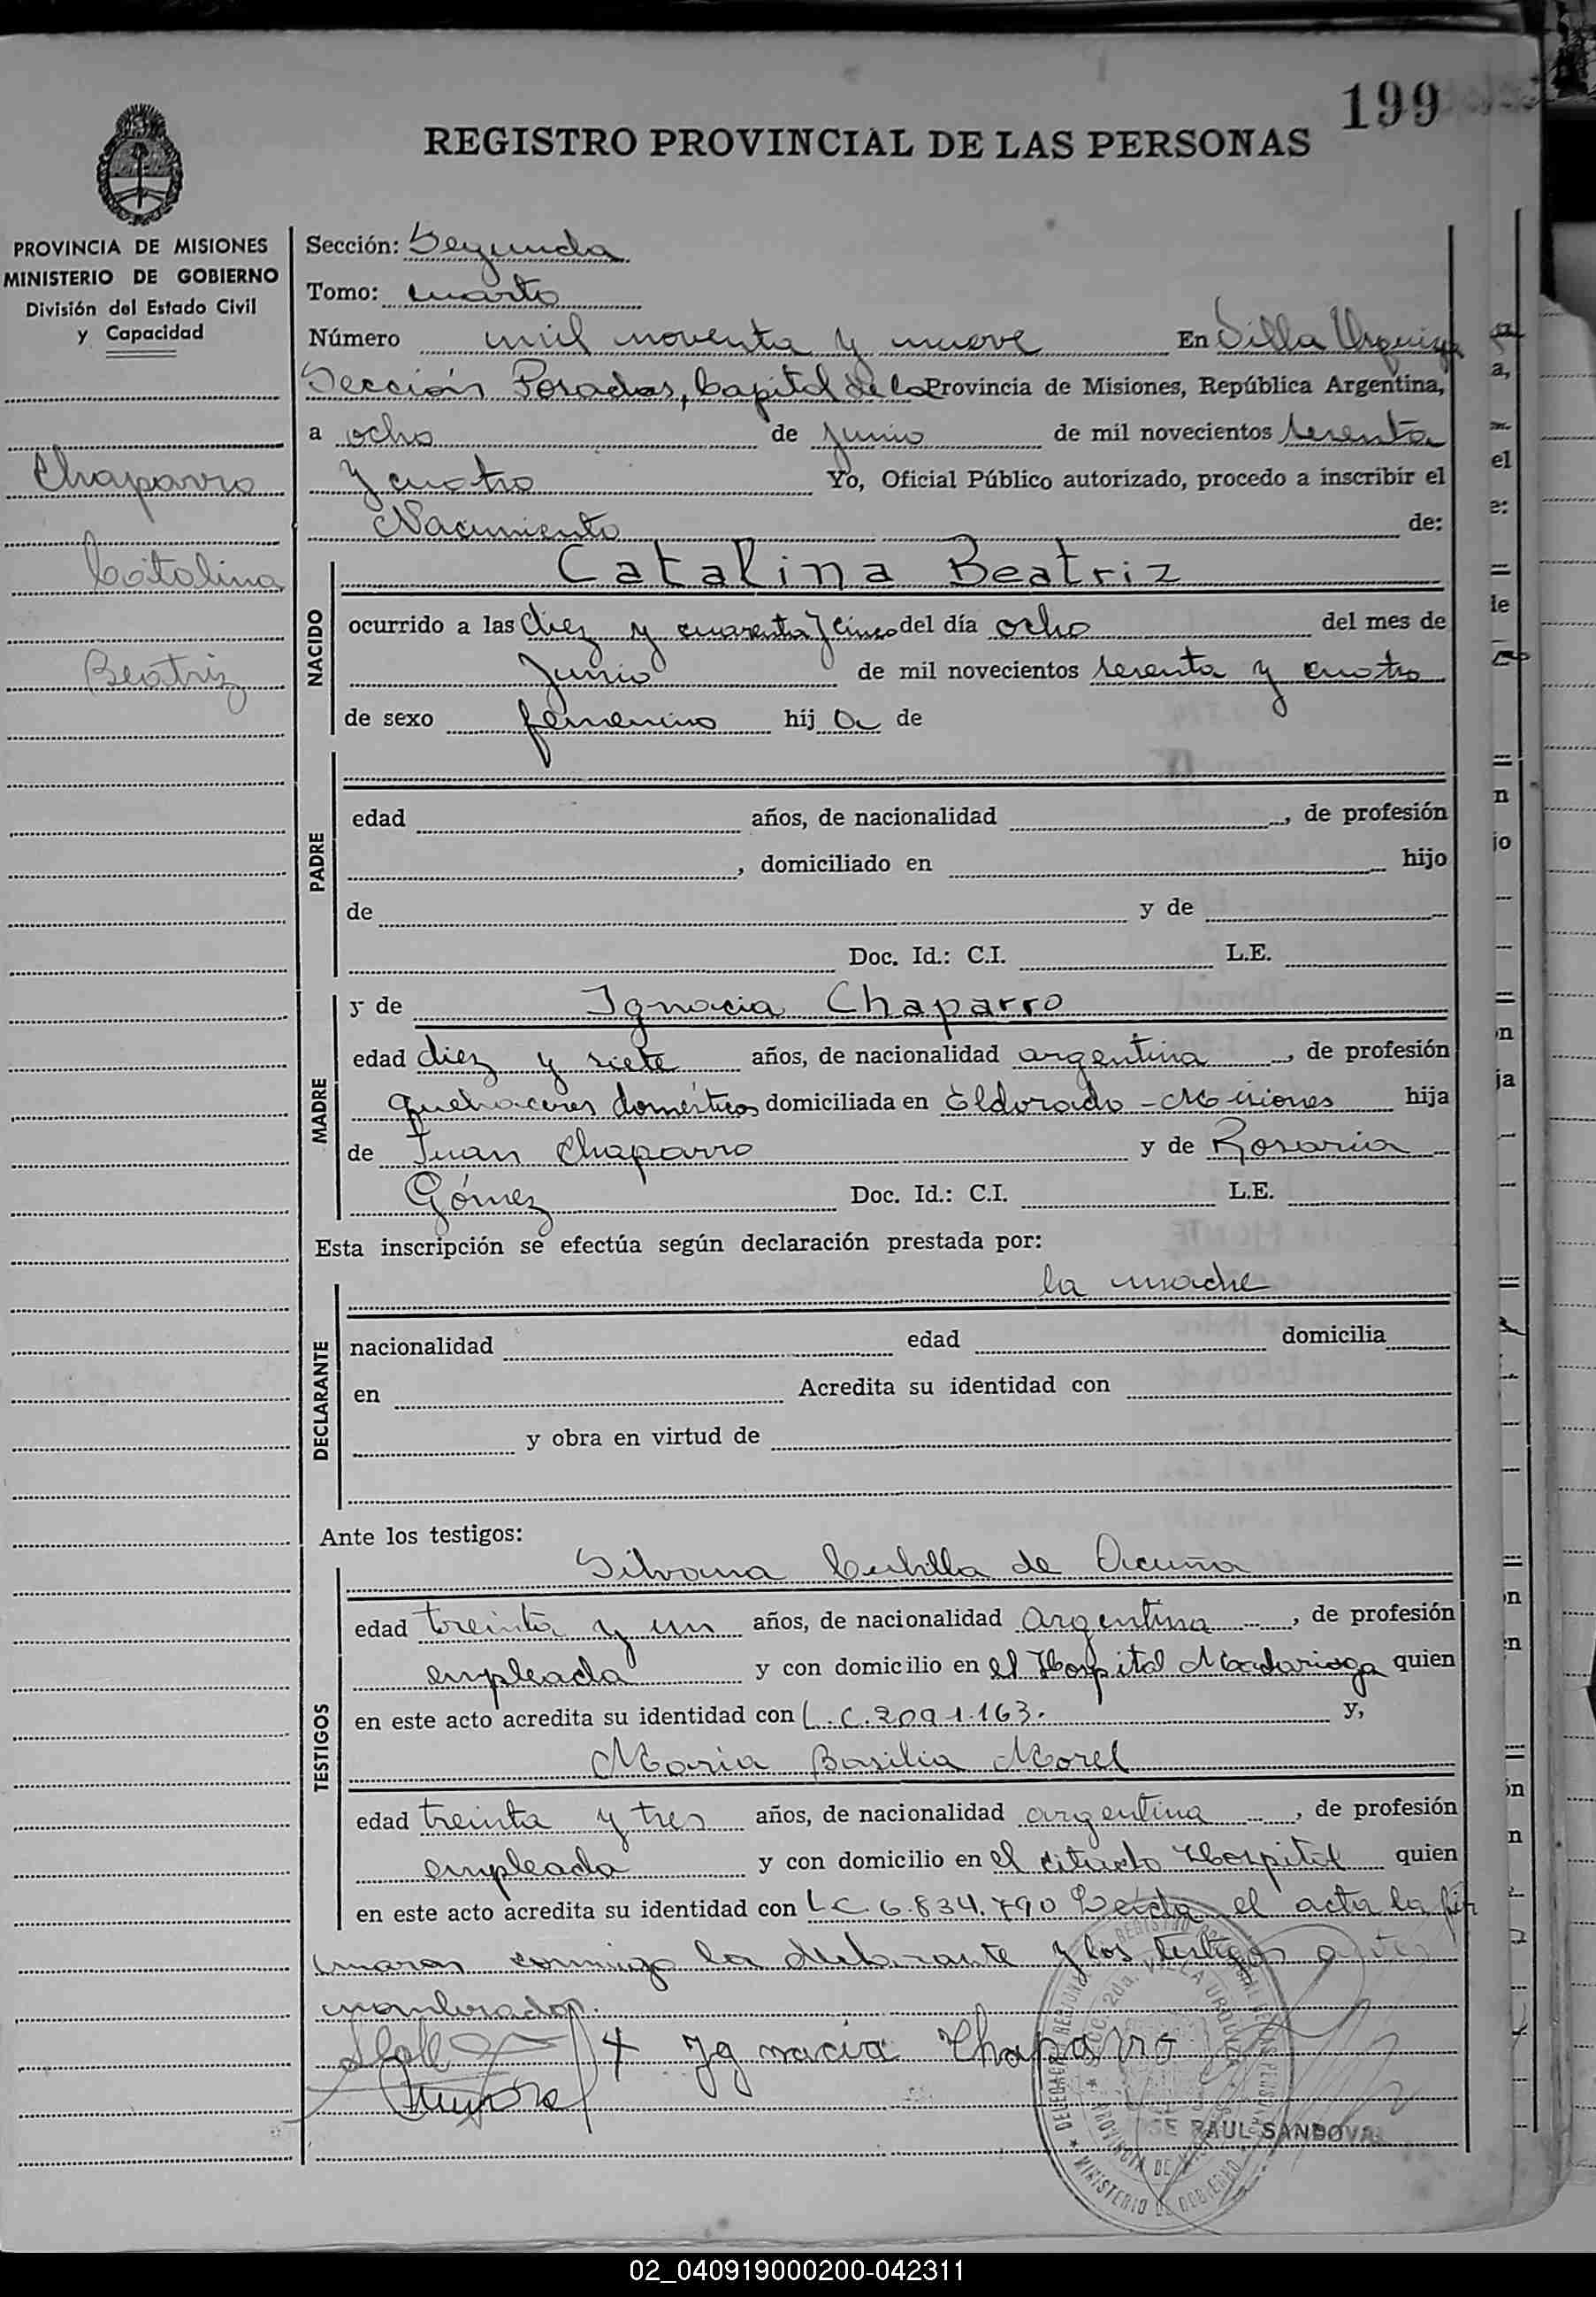 199
REGISTRO PROVINCIAL DE LAS PERSONAS
PROVINCIA DE MISIONES
MINISTERIO DE GOBIERNO
División del Estado Civil
y Capacidad
Chaparro
Catalina
Beatriz
Sección: Segunda
Tomo: cuarto
Número mil noventa y nueve En Villa Urquiza
Sección Posadas, Capital de la Provincia de Misiones, República Argentina,
a ocho de junio de mil novecientos sesenta
y cuatro Yo, Oficial Público autorizado, procedo a inscribir el
Nacimiento de:
NACIDO
Catalina Beatriz
ocurrido a las diez y cuarenta y cinco del día ocho del mes de
Junio de mil novecientos sesenta y cuatro
de sexo femenino hija de
PADRE
edad años, de nacionalidad , de profesión
, domiciliado en hijo
de y de
Doc. Id.: C.I. L.E.
MADRE
y de Ignacia Chaparro
edad diez y siete años, de nacionalidad argentina, de profesión
quehaceres domésticos domiciliada en Eldorado - Misiones hija
de Juan Chaparro y de Rosaria
Gómez Doc. Id.: C.I. L.E.
Esta inscripción se efectúa según declaración prestada por:
DECLARANTE
la madre
nacionalidad edad domicilia
en Acredita su identidad con
y obra en virtud de
Ante los testigos:
TESTIGOS
Silvana Cubilla de Acuña
edad treinta y un años, de nacionalidad argentina, de profesión
empleada y con domicilio en el Hospital Madariaga quien
en este acto acredita su identidad con L.C. 2091.163. y,
María Basilia Morel
edad treinta y tres años, de nacionalidad argentina, de profesión
empleada y con domicilio en el citado Hospital quien
en este acto acredita su identidad con L C 6.834.790 Leida el acta la fir
maron conmigo la declarante y los testigos antes
nombrados.
+ Ignacia Chaparro
RAUL SANDOVAL
02_040919000200-042311